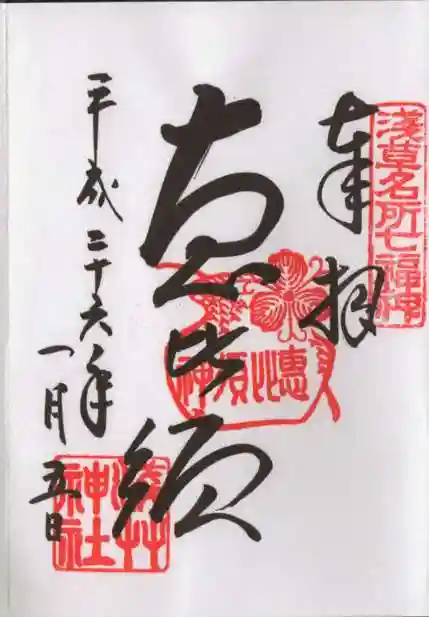 浅草名所七福神
奉拝
恵比須
惠比須神
平成二十六年
一月五日
浅草神社